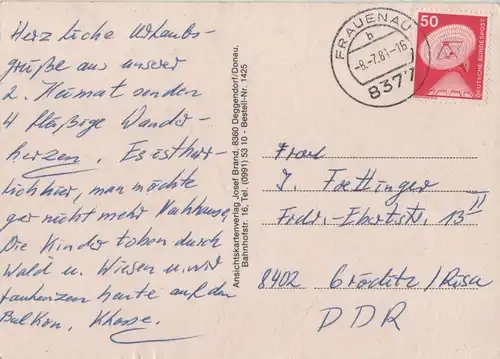 Herzliche Urlaubs-
grüße aus unser
2. Heimat senden
4 fleißige Wander-
herzen. Es ist herr-
lich hier, man möchte
gar nicht mehr Nachhause
Die Kinder toben durch
Wald u. Wiesen u. wir
heute auf den
Balkon. Klasse.
Ansichtskartenverlag Josef Brand, 8360 Deggendorf/Donau.
Bahnhofstr. 16, Tel. (0991) 53 10 - Bestell-Nr. 1425
FRAUENAU
b
-8.-7.81-16
8377
50
DEUTSCHE BUNDESPOST
J. Foettinger
Fredr.-Ebertstr. 13 II
8402 Gröditz/Riesa
DDR